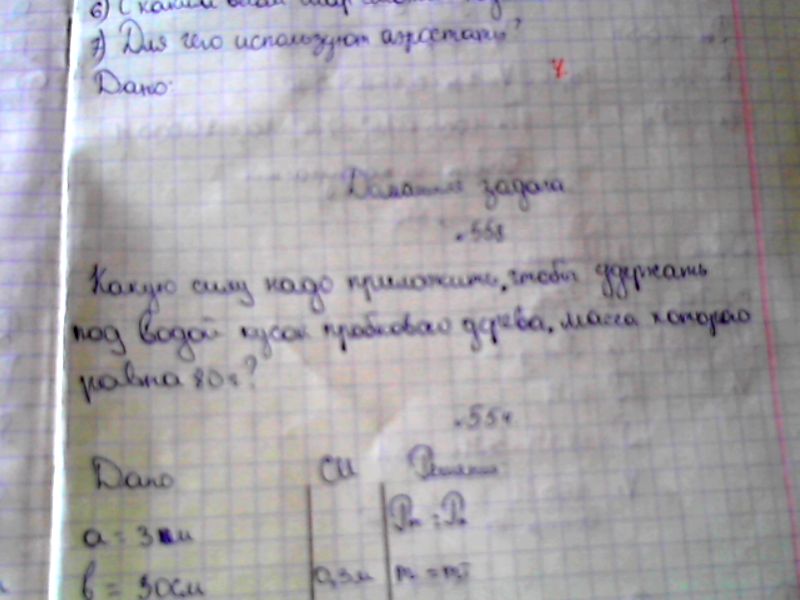 7) Для чего используют аэростаты?
Дано:
Домашняя задача
Какую силу надо приложить, чтобы удержать
под водой кусок пробкового дерева, масса которого
равна 80 г?
.554
Дано СИ Решение
a = 3 м
b = 30 см 0,3 м